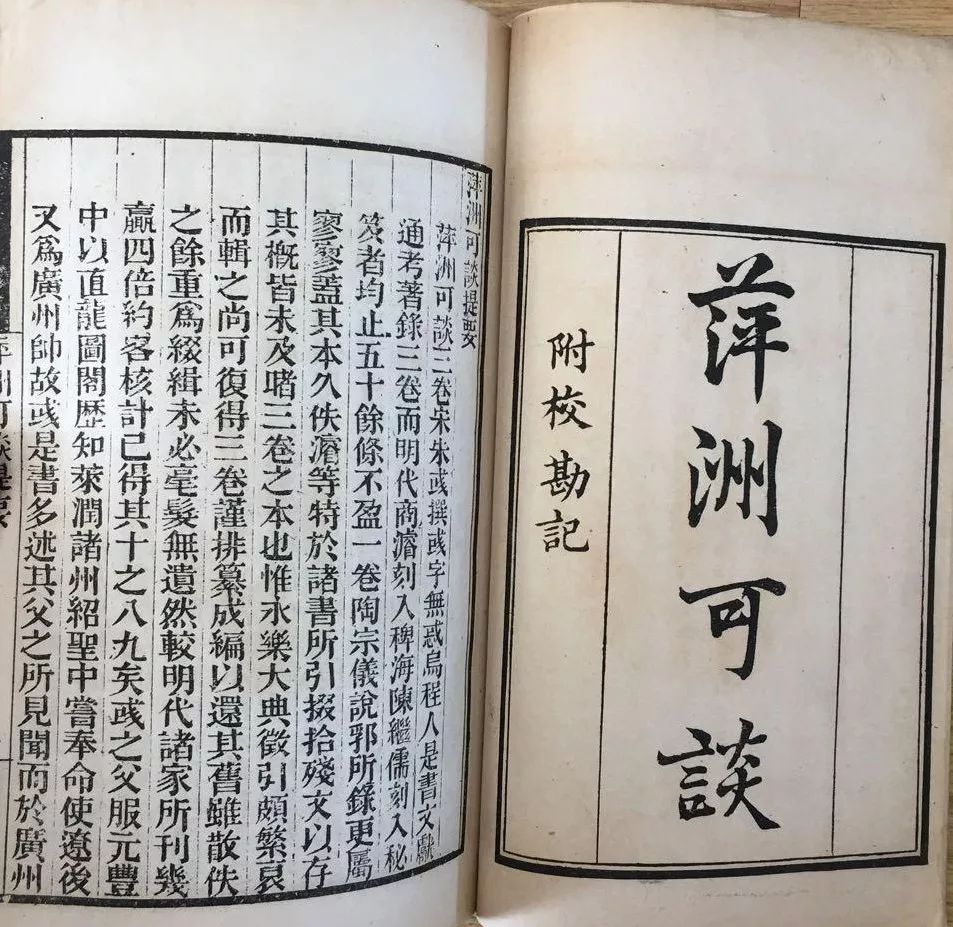 萍洲可談
附校勘記
萍洲可談提要
萍洲可談三卷宋朱彧撰彧字無惑烏程人是書文獻
通考著錄三卷而明代商濬刻入稗海陳繼儒刻入秘
笈者均止五十餘條不盈一卷陶宗儀說郛所錄更屬
寥寥蓋其本久佚濬等特於諸書所引掇拾殘文以存
其概皆未及睹三卷之本也惟永樂大典徵引頗繁裒
而輯之尚可復得三卷謹排纂成編以還其舊雖散佚
之餘重爲綴緝未必毫髮無遺然較明代諸家所刊幾
贏四倍約畧核計已得其十之八九矣彧之父服元豐
中以直龍圖閣歷知萊潤諸州紹聖中嘗奉命使遼後
又爲廣州帥故彧是書多述其父之所見聞而於廣州